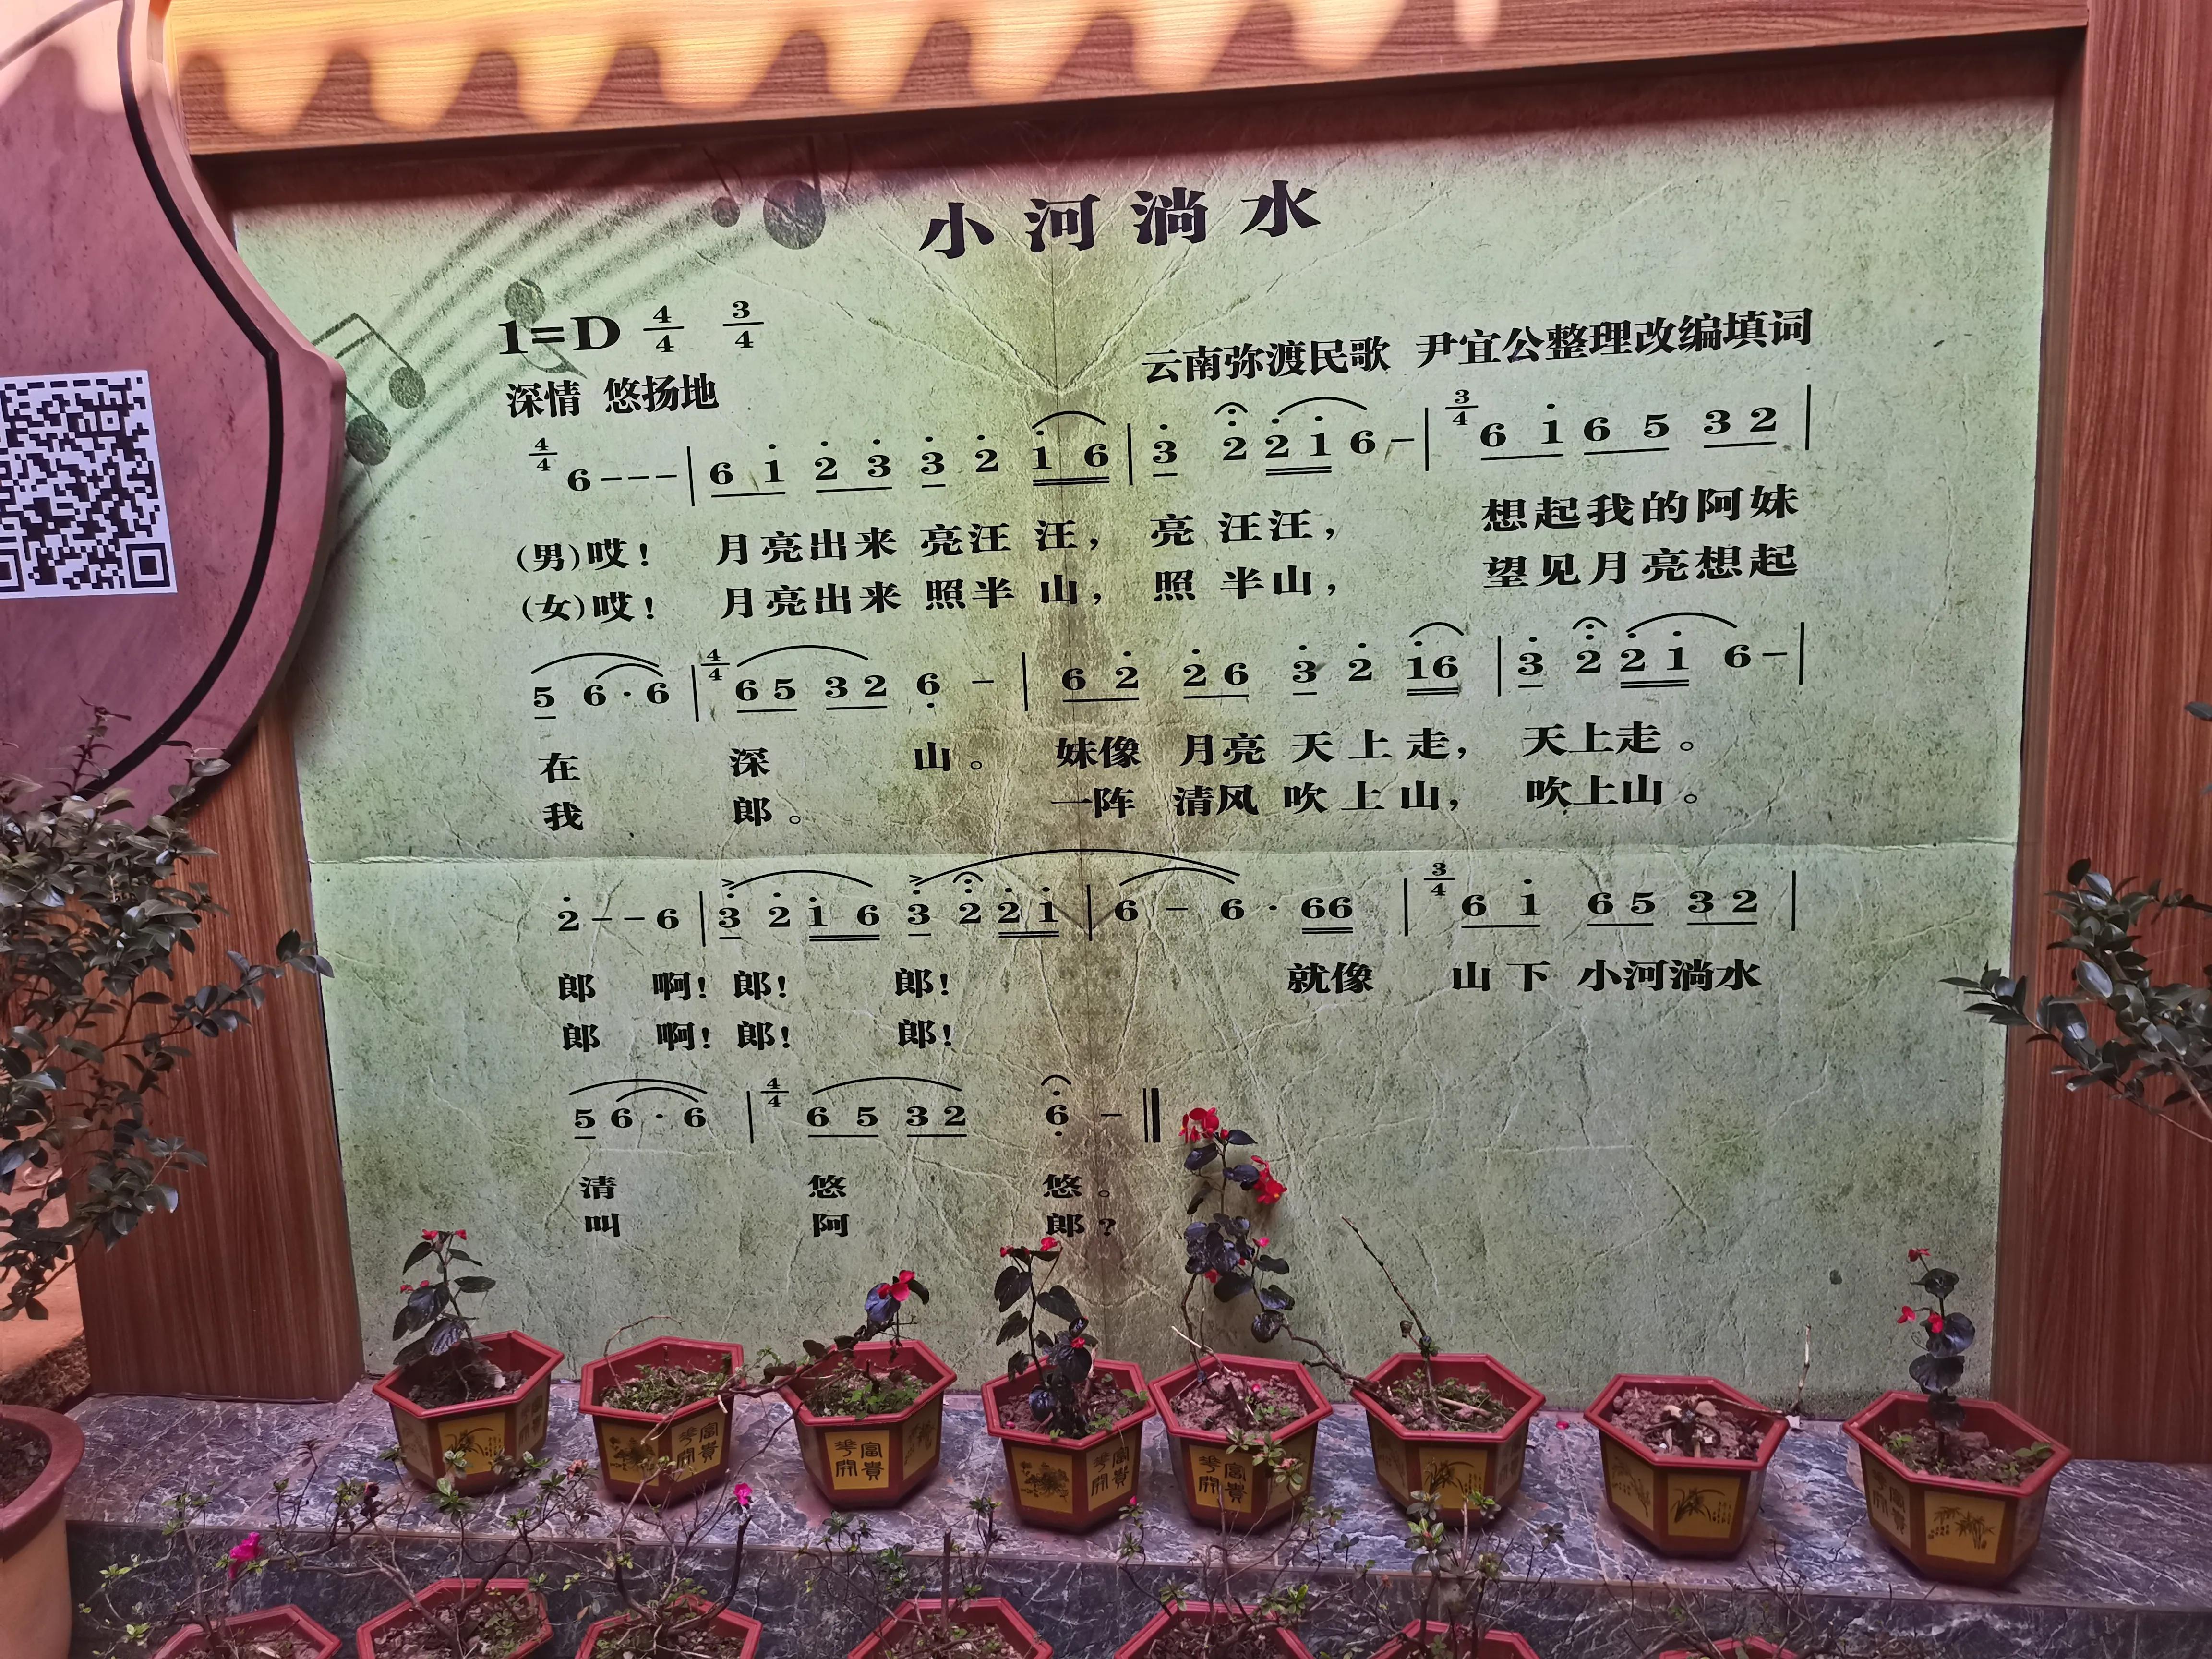 小河淌水
1=D 4/4 3/4
云南弥渡民歌 尹宜公整理改编填词
深情 悠扬地
4/4 6 - - - | 6 1̇ 2̇ 3̇ 3̇ 2̇ 1̇ 6 | 3̇ 2̇ 2̇ 1̇ 6 - | 3/4 6 1̇ 6 5 3 2 |
(男)哎! 月亮出来 亮汪 汪, 亮 汪汪, 想起我的阿妹
(女)哎! 月亮出来 照半 山, 照 半山, 望见月亮想起
5 6 · 6 | 4/4 6 5 3 2 6̣ - | 6 2̇ 2̇ 6 3̇ 2̇ 1̇ 6 | 3̇ 2̇ 2̇ 1̇ 6 - |
在 深 山。 妹像 月亮 天上走, 天上走。
我 郎。 一阵 清风 吹上山, 吹上山。
2̇ - - 6 | 3̇ 2̇ 1̇ 6 3̇ 2̇ 2̇ 1̇ | 6 - 6 · 6 6 | 3/4 6 1̇ 6 5 3 2 |
郎 啊! 郎! 郎! 就像 山下 小河淌水
郎 啊! 郎! 郎!
5 6 · 6 | 4/4 6 5 3 2 6̣ - ‖
清 悠 悠。
叫 阿 郎?
花開 富貴
花開 富貴
花開 富貴
花開 富貴